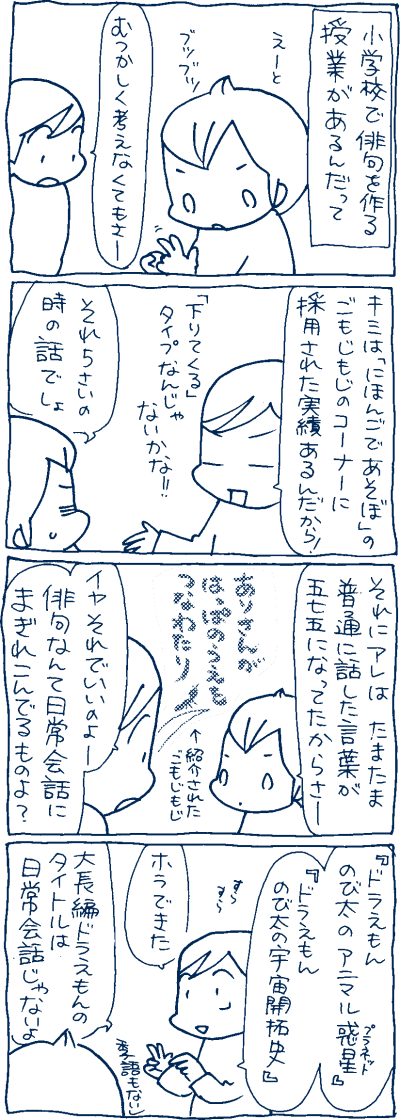 小学校で俳句を作る
授業があるんだって
えーと
ブツブツ
むつかしく考えなくてもさー
キミは「にほんごであそぼ」の
ごもじもじのコーナーに
採用された実績あるんだから!
「下りてくる」
タイプなんじゃ
ないかな!!
それ5さいの
時の話でしょ
それにアレは たまたま
普通に話した言葉が
五七五になってたからさー
ありさんが
はっぱのうえを
つなわたり
↑紹介された
ごもじもじ
イヤそれでいいのよー
俳句なんて日常会話に
まぎれこんでるものよ?
『ドラえもん
のび太のアニマル惑星』
プラネット
『ドラえもん
のび太の宇宙開拓史』
すら
すら
ホラできた
大長編ドラえもんの
タイトルは
日常会話じゃないよ
季語もない